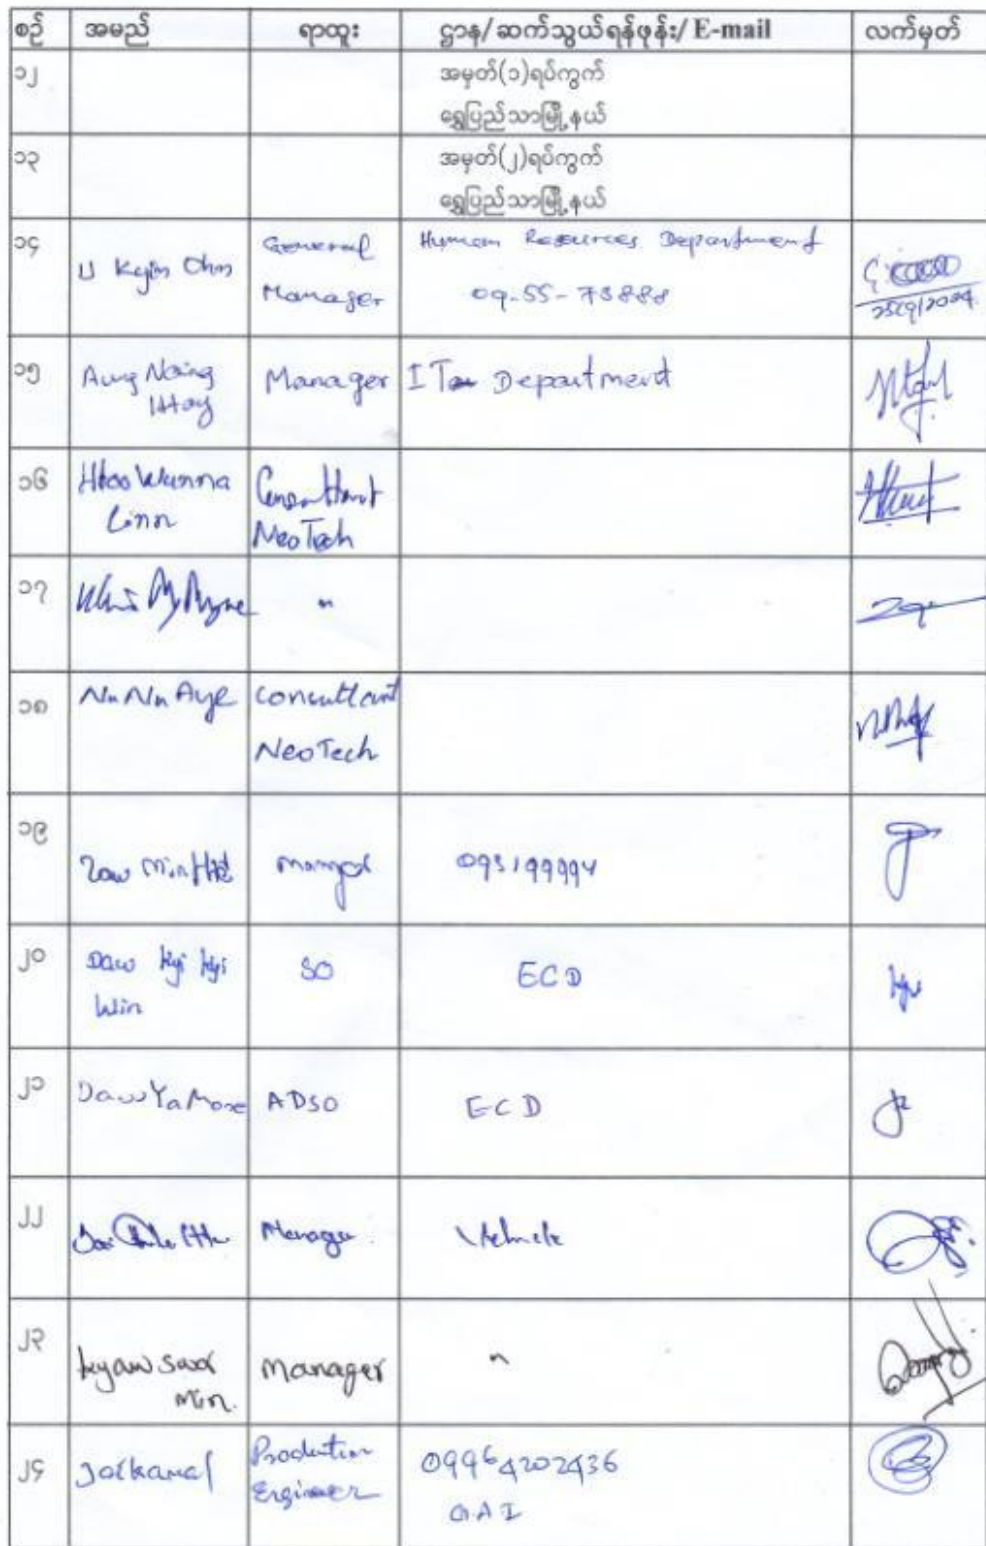 စဉ် အမည် ရာထူး ဌာန/ဆက်သွယ်ရန်ဖုန်း/E-mail လက်မှတ်
၁၂ အမှတ်(၁)ရပ်ကွက်
ရွှေပြည်သာမြို့နယ်
၁၃ အမှတ်(၂)ရပ်ကွက်
ရွှေပြည်သာမြို့နယ်
၁၄ U Kyin Ohn General Human Resources Department
Manager 09-55-73888
25/9/2024
၁၅ Aung Naing Manager IT Department
Htay
၁၆ Htoo Wunna Consultant
Linn NeoTech
၁၇ "
၁၈ Nu Nu Aye Consultant
NeoTech
၁၉ Zaw Min Htet 095199994
၂၀ Daw Kyi Kyi SO ECD
Win
၂၁ Daw Ya Mone ADSO ECD
၂၂ Manager Vehicle
၂၃ Kyaw Swar Manager "
Min.
၂၄ Jaikamal Production 09964202436
Engineer GAI